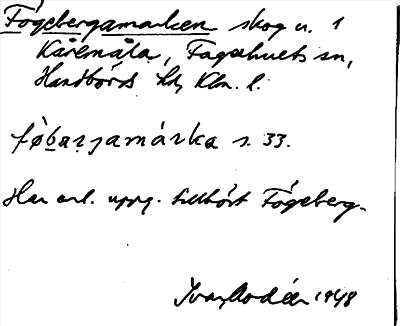 Fögebergamarken skog u. 1
Kåremåla, Fagerhults sn,
Handbörds hd, Klm. l.
fö̀barjamárka s. 33.
Har enl. uppg. tillhört Fögeberg.
Ivar Modéer 1948